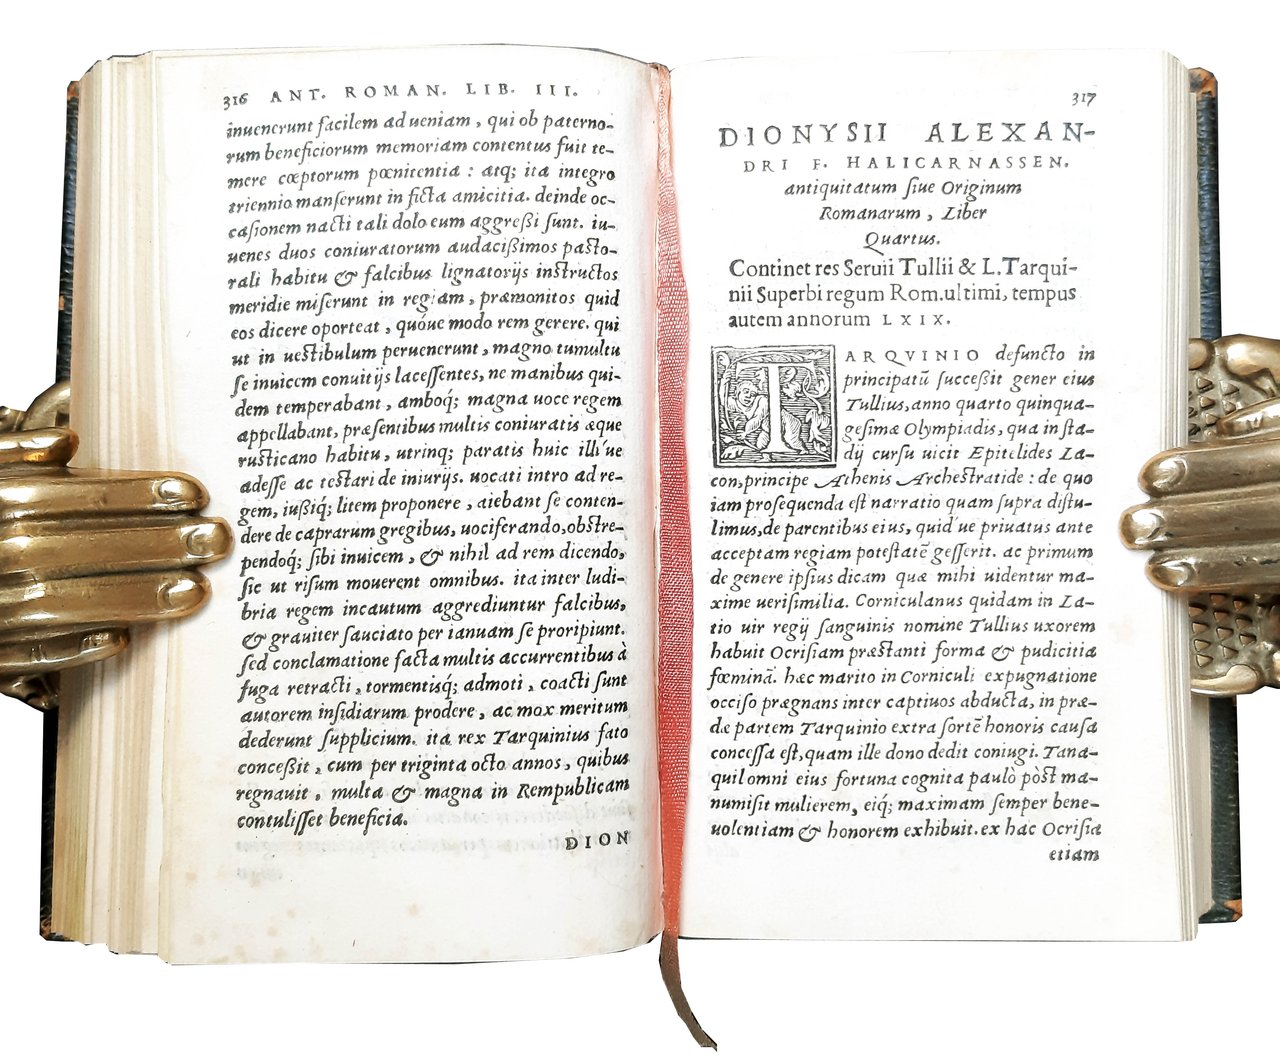 316 ANT. ROMAN. LIB. III.
inuenerunt facilem ad ueniam, qui ob paterno-
rum beneficiorum memoriam contentus fuit te-
mere cœptorum pœnitentia : atq; ita integro
triennio manserunt in ficta amicitia. deinde oc-
casionem nacti tali dolo eum aggreßi sunt. iu-
uenes duos coniuratorum audacißimos pasto-
rali habitu & falcibus lignatorijs instructos
meridie miserunt in regiam, præmonitos quid
eos dicere oporteat, quóue modo rem gerere. qui
ut in uestibulum peruenerunt, magno tumultu
se inuicem conuitijs lacessentes, ne manibus qui-
dem temperabant, amboq́; magna uoce regem
appellabant, præsentibus multis coniuratis æque
rusticano habitu, utrinq; paratis huic illíue
adesse ac testari de iniurijs. uocati intro ad re-
gem, iußiq́; litem proponere, aiebant se conten-
dere de caprarum gregibus, uociferando, obstre-
pendoq́; sibi inuicem, & nihil ad rem dicendo,
sic ut risum mouerent omnibus. ita inter ludi-
bria regem incautum aggrediuntur falcibus,
& grauiter sauciato per ianuam se proripiunt.
sed conclamatione facta multis accurrentibus à
fuga retracti, tormentisq́; admoti, coacti sunt
autorem insidiarum prodere, ac mox meritum
dederunt supplicium. ita rex Tarquinius fato
conceßit, cum per triginta octo annos, quibus
regnauit, multa & magna in Rempublicam
contulisset beneficia.
DION
317
DIONYSII ALEXAN-
DRI F. HALICARNASSEN.
antiquitatum siue Originum
Romanarum, Liber
Quartus.
Continet res Seruii Tullii & L. Tarqui-
nii Superbi regum Rom. ultimi, tempus
autem annorum LXIX.
TARQVINIO defuncto in
principatū successit gener eius
Tullius, anno quarto quinqua-
gesimæ Olympiadis, qua in sta-
dij cursu uicit Epitelides La-
con, principe Athenis Archestratide : de quo
iam prosequenda est narratio quam supra distu-
limus, de parentibus eius, quid ue priuatus ante
acceptam regiam potestatē gesserit. ac primum
de genere ipsius dicam quæ mihi uidentur ma-
xime uerisimilia. Corniculanus quidam in La-
tio uir regij sanguinis nomine Tullius uxorem
habuit Ocrisiam præstanti forma & pudicitia
fœminā. hæc marito in Corniculi expugnatione
occiso prægnans inter captiuos abducta, in præ-
dæ partem Tarquinio extra sortē honoris causa
concessa est, quam ille dono dedit coniugi. Tana-
quil omni eius fortuna cognita paulò pòst ma-
numisit mulierem, eiq́; maximam semper bene-
uolentiam & honorem exhibuit. ex hac Ocrisia
etiam